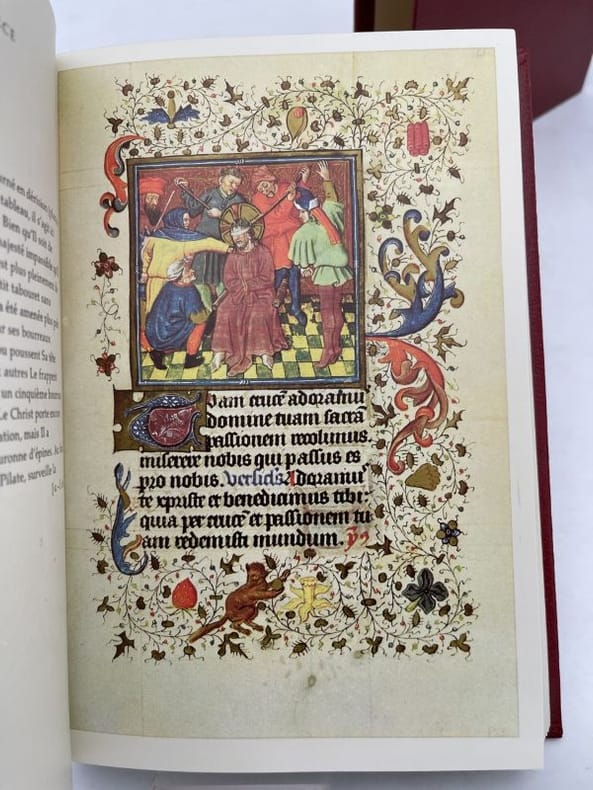 CE
rné en dérision
tableau, il s'agit
Bien qu'Il soit de
majesté impassible
est plus pleinement
tit tabouret sans
a été amenée plus
r ses bourreaux
ou poussent Sa tête
autres Le frappent
un cinquième
Le Christ porte
ation, mais Il a
uronne d'épines.
Pilate, surveille la
Tuam crucē adoramus
domine tuam sacrā
passionem recolimus.
miserere nobis qui passus es
pro nobis. Adoramus
te xpriste et benedicimus tibi:
quia per crucē et passionem tu
am redemisti mundum.